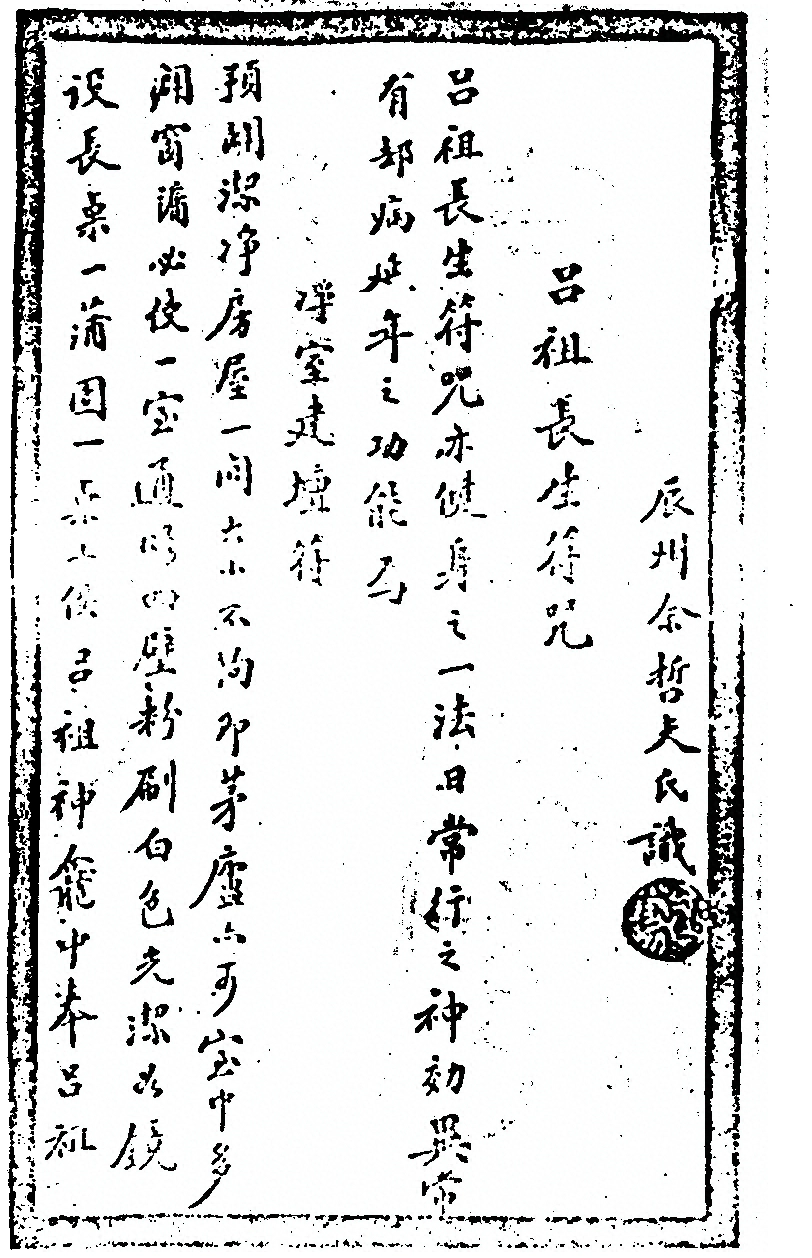 辰州余哲夫氏識
呂祖長生符咒
呂祖長生符咒亦健身之一法日常行之神効異常
有却病延年之功能焉
淨室建壇符
預闢潔净房屋一间大小不拘即茅廬亦可室中多
開窗牖必使一室通明四壁粉刷白色光潔如鏡
设長桌一蒲团一桌上供呂祖神龕中奉呂祖